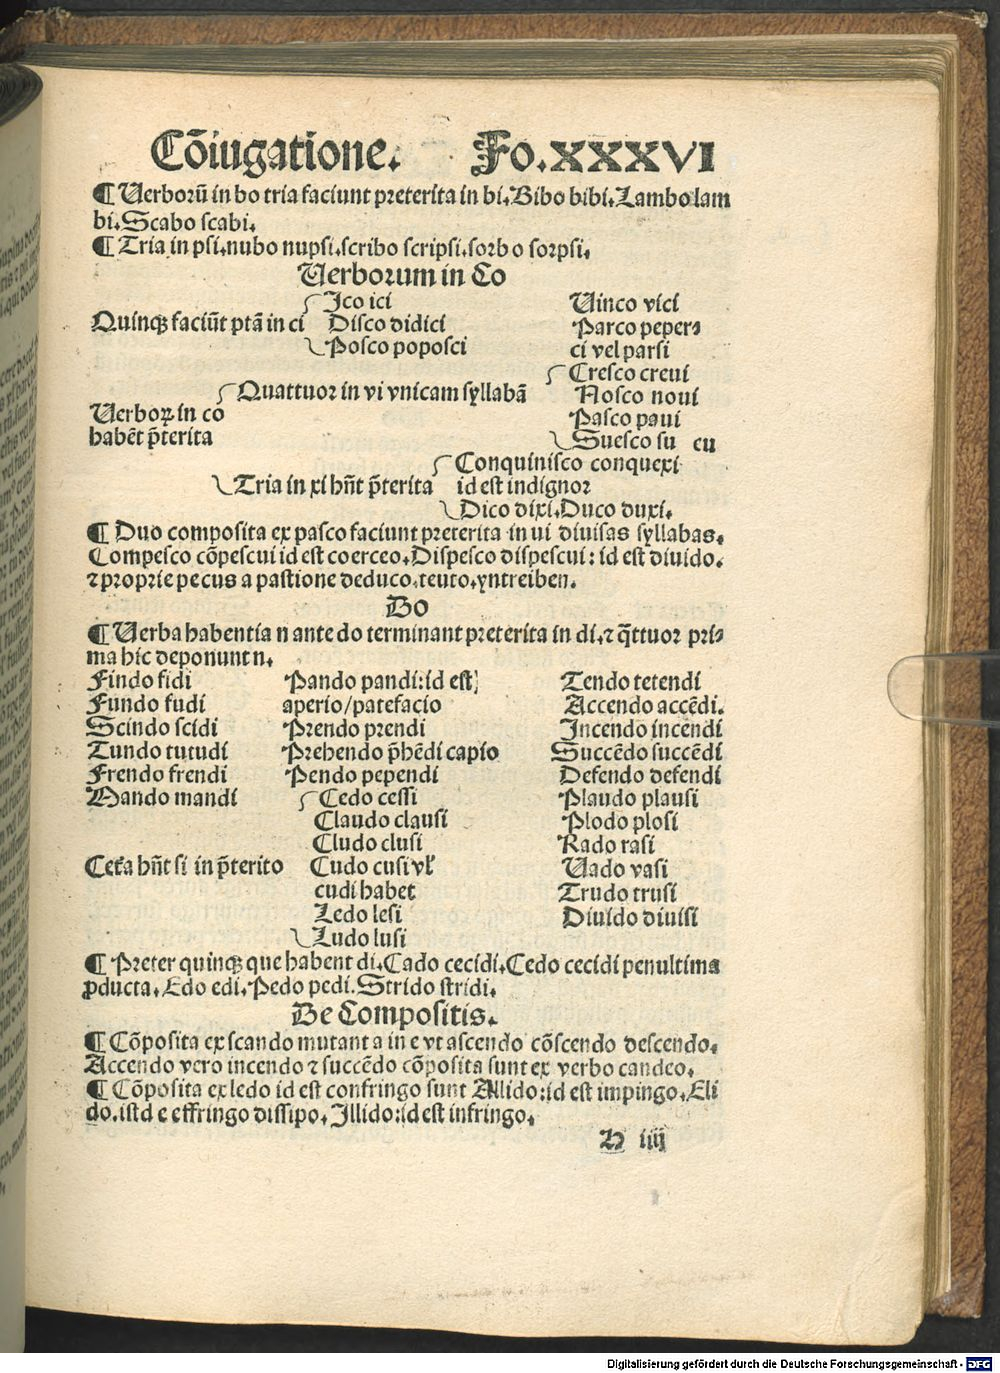 Cōiugatione. Fo. XXXVI
¶ Uerborū in bo tria faciunt preterita in bi. Bibo bibi. Lambo lam
bi. Scabo scabi.
¶ Tria in psi. nubo nupsi. scribo scripsi. sorb o sorpsi.
Uerborum in Co
Ico ici Uinco vici
Quinqꝫ faciūt ptā in ci Disco didici Parco peper⸗
Posco poposci ci vel parsi
Cresco creui
Quattuor in vi vnicam syllabā Nosco noui
Uerboꝝ in co Pasco paui
habēt p̄terita Suesco su eu
Conquinisco conquexi
Tria in xi hn̄t p̄terita id est indignor
Dico dixi. Duco duxi.
¶ Duo composita ex pasco faciunt preterita in ui diuisas syllabas.
Compesco cōpescui id est coerceo. Dispesco dispescui: id est diuido.
⁊ proprie pecus a pastione deduco. teuto. yntreiben.
Do
¶ Uerba habentia n ante do terminant preterita in di. ⁊ q̄ttuor pri⸗
ma hic deponunt n.
Findo fidi Pando pandi: id est Tendo tetendi
Fundo fudi aperio/patefacio Accendo accēdi.
Scindo scidi Prendo prendi Incendo incēndi
Tundo tutudi Prehendo p̄hēdi capio Succēdo succēdi
Frendo frendi Pendo pependi Defendo defendi
Mando mandi Cedo cessi Plaudo plausi
Claudo clausi Plodo plosi
Cludo clusi Rado rasi
Cet̄a hn̄t si in p̄terito Cudo cusi vl̓ Uado vasi
cudi habet Trudo trusi
Ledo lesi Diuido diuisi
Ludo lusi
¶ Preter quinqꝫ que habent di. Cado cecidi. Cedo cecidi penultima
ꝓducta. Edo edi. Pedo pedi. Strido stridi.
De Compositis.
¶ Cōposita ex scando mutant a in e vt ascendo cōscendo descendo.
Accendo vero incendo ⁊ succēdo cōposita sunt ex verbo candeo.
¶ Cōposita ex ledo id est confringo sunt Allido: id est impingo. Eli
do. ist d e effringo dissipo. Illido: id est infringo.
H iiij
Digitalisierung gefördert durch die Deutsche Forschungsgemeinschaft - DFG